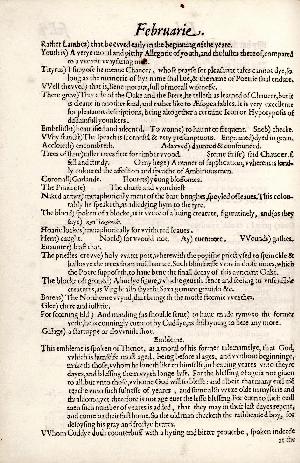 Februarie.
Rather Lambes) that be ewed early in the beginning of the yeare.
Youth is) A verye morall and pitthy Allegorie of youth, and the lustes thereof, compared
to a wearie wayfaring man.
Tityrus) I suppose he meane Chaucer, whose prayse for pleasaunt tales cannot dye, so
long as the memorie of hys name shal liue, & the name of Poetrie shal endure.
VVell thewed) that is, Bene moratæ, full of morall wisenesse.
There grew) This tale of the Oake and the Brere, he telleth as learned of Chaucer, but it
is cleane in another kind, and rather like to Æsopes fables. It is very excellente
for pleasaunt descriptions, being altogether a certaine Icon or Hypotyposis of
disdainfull younkers.
Embellisht) beautified and adorned. To wonne) to haunt or frequent. Sneb) checke.
VVhy standst) The speach is scornefull & very presumptuous. Engrained) dyed in grain.
Accloieth) encombreth. Adawed) daunted & confounded.
Trees of state) taller trees fitte for timber wood. Sterne strife) said Chaucer. s.
fell and sturdy. O my liege) A maner of supplication, wherein is kind-
ly coloured the affection and speache of Ambitious men.
Coronall) Garlande. Flourets) young blossomes.
The Primrose) The chiefe and worthiest
Naked armes) metaphorically ment of the bare boughes, spoyled of leaues. This colou-
rably he speaketh, as adiudging hym to the fyre.
The blood) spoken of a blocke, as it were of a liuing creature, figuratiuely, and (as they
saye)
Hoarie lockes) metaphorically for withered leaues.
Hent) caught. Nould) for would not. Ay) euermore. VVounds) gashes.
Enaunter) least that.
The priestes crewe) holy water pott, wherewith the popishe priest vsed to sprinckle &
hallowe the trees from mischaunce. Such blindnesse was in those times, which
the Poete supposeth, to haue bene the finall decay of this auncient Oake.
The blocke oft groned) A liuelye figure, whiche geueth sence and feeling to vnsensible
creatures, as Virgile also sayeth: Saxa gemunt grauido &c.
Boreas) The Northerne wynd, that bringeth the moste stormie weather.
Glee) chere and iollitie.
For scorning Eld) And minding (as shoulde seme) to haue made ryme to the former
verse, he is conningly cutte of by Cuddye, as disdayning to here any more.
Galage) a startuppe or clownish shoe.
Embleme.
This embleme is spoken of Thenot, as a moral of his former tale: namelye, that God,
which is himselfe most aged, being before al ages, and without beginninge,
maketh those, whom he loueth like to himselfe, in heaping yeares vnto theyre
dayes, and blessing them wyth longe lyfe. For the blessing of age is not giuen
to all, but vnto those, whome God will so blesse: and albeit that many euil mē
reache vnto such fulnesse of yeares, and some also wexe olde in myserie and
thraldome, yet therefore is not age euer the lesse blessing. For euen to such euill
men such number of yeares is added, that they may in their last dayes repent,
and come to their first home. So the old man checketh the rashheaded boy, for
despysing his gray and frostye heares.
VVhom Cuddye doth counterbuff with a byting and bitter prouerbe, spoken indeede
at the